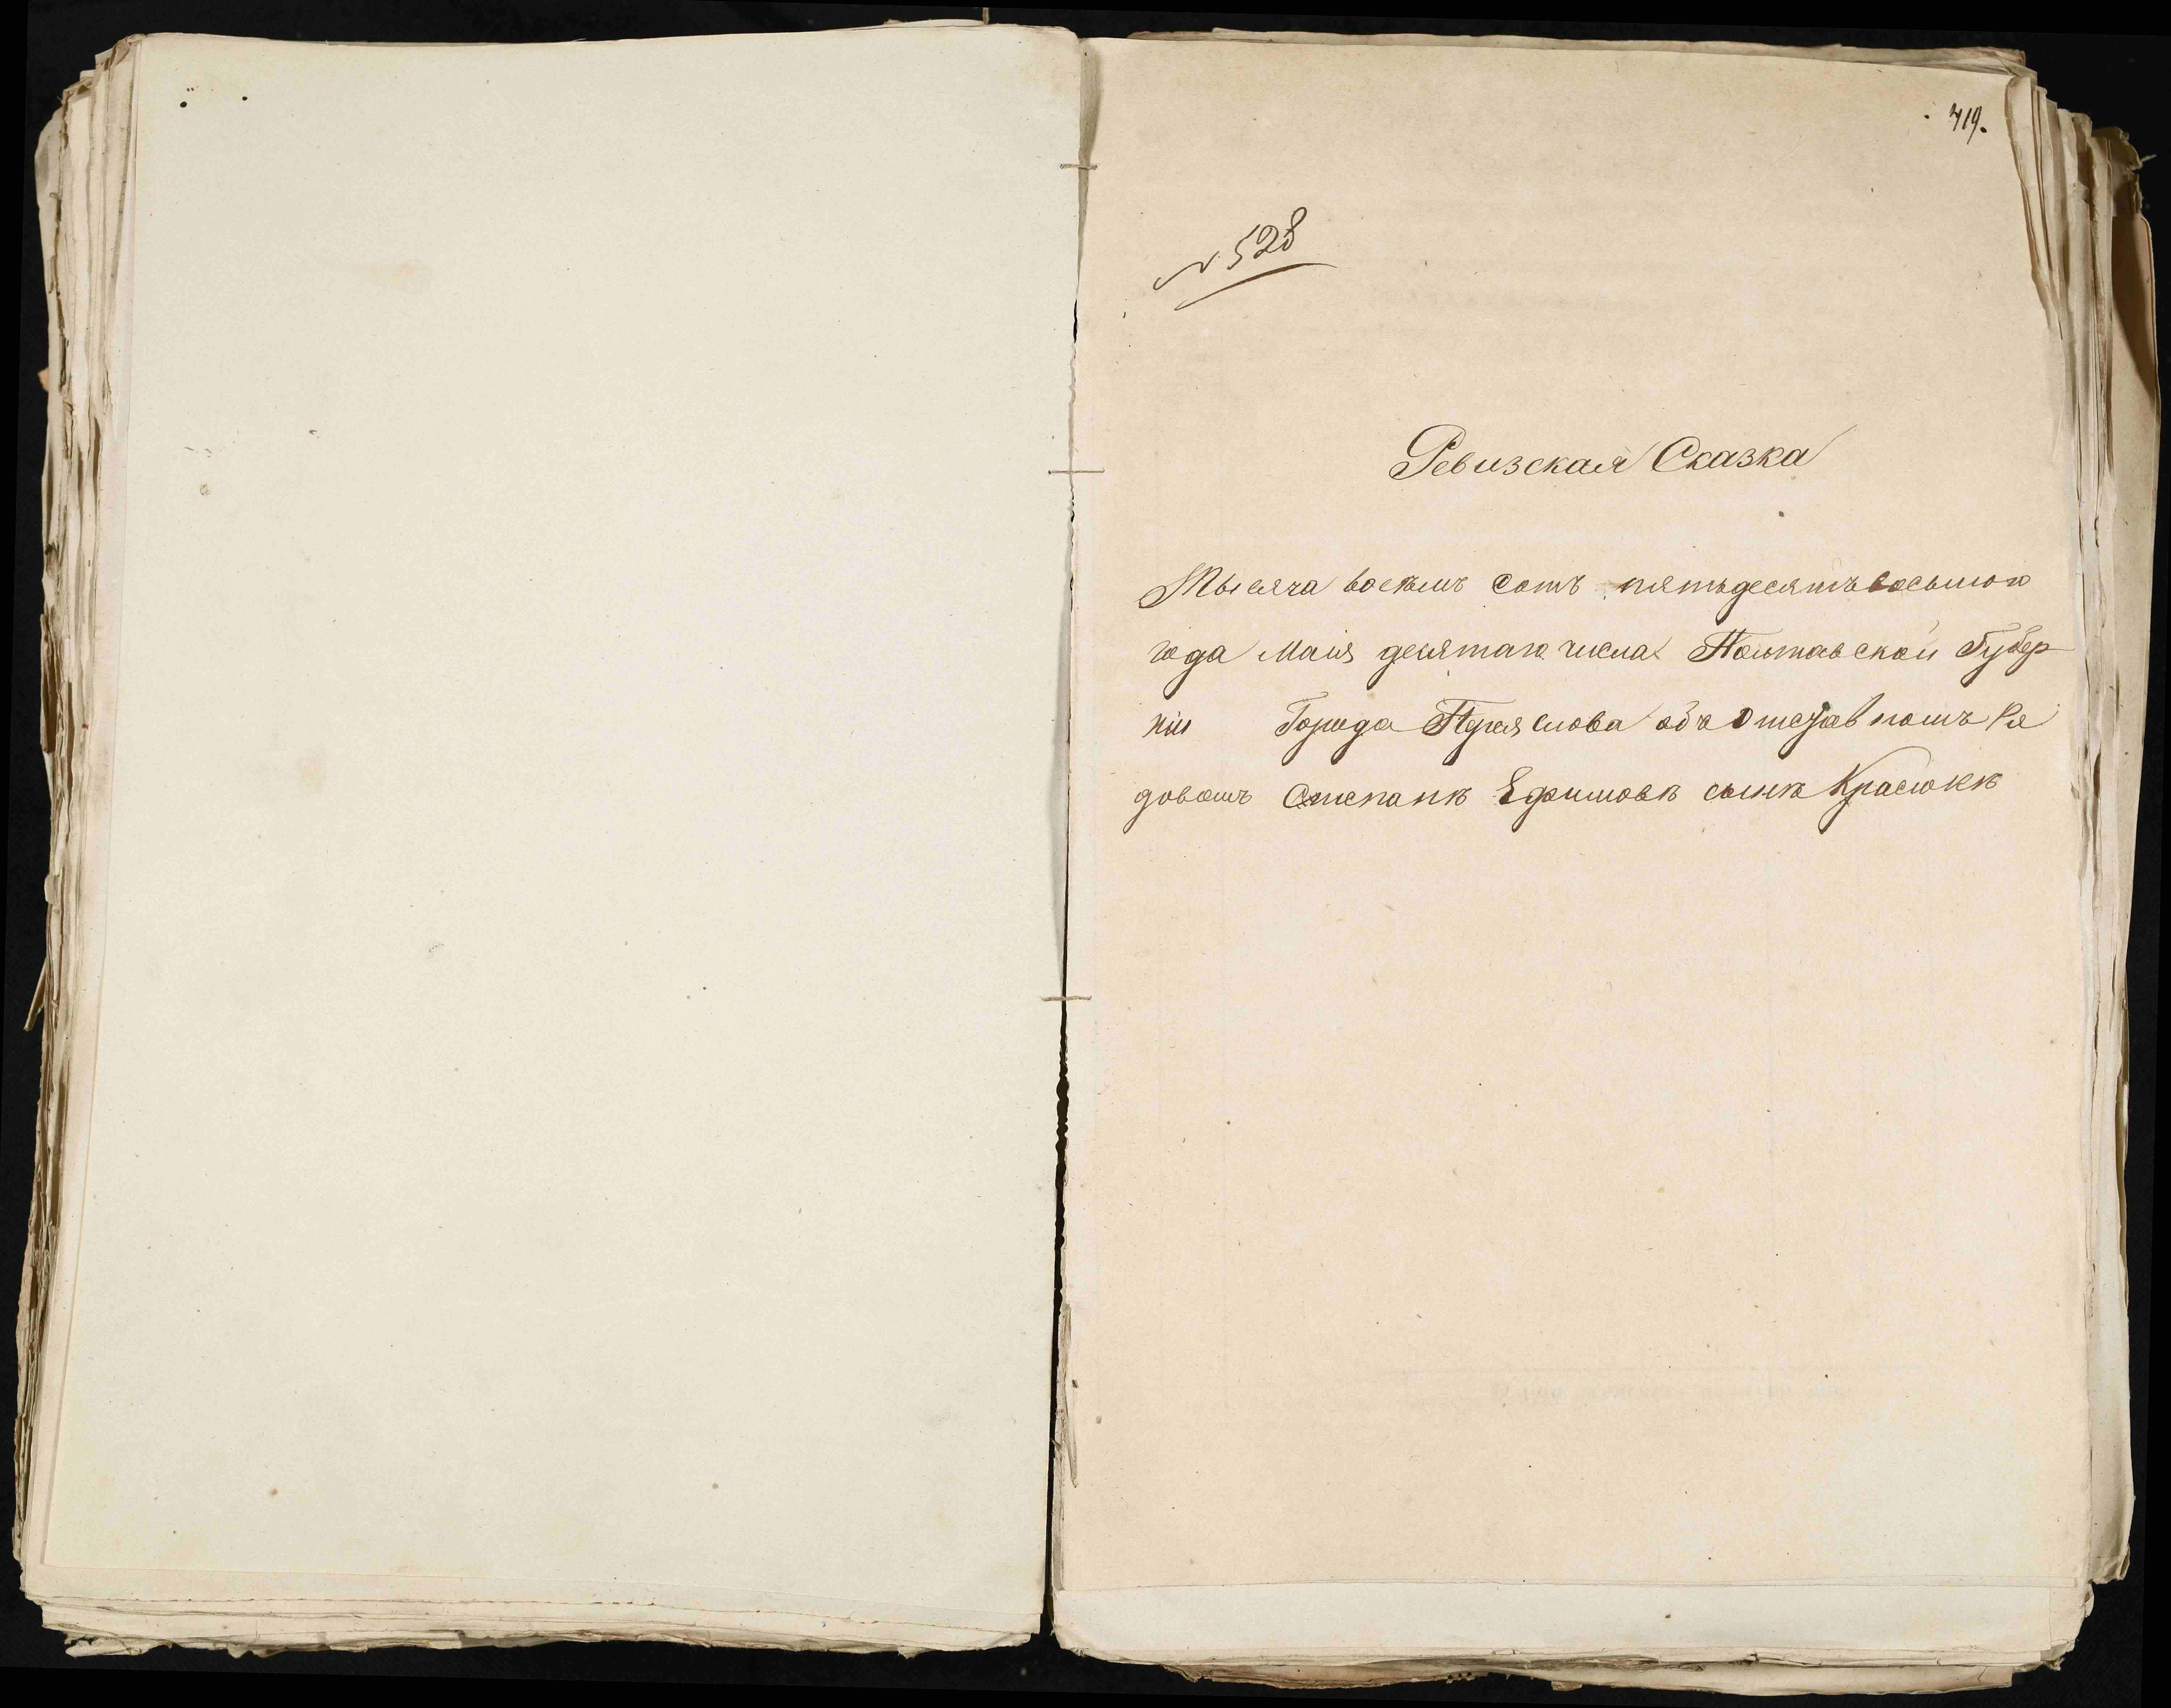 719.
№ 528
Ревизская Сказка
Тысяча восемь сотъ пятьдесятъ восьмого
года Маія десятаго числа Полтавской Губер
ніи Города Переяслова объ отставномъ Ря
довомъ Степанѣ Ефимовѣ сынѣ Красюкѣ